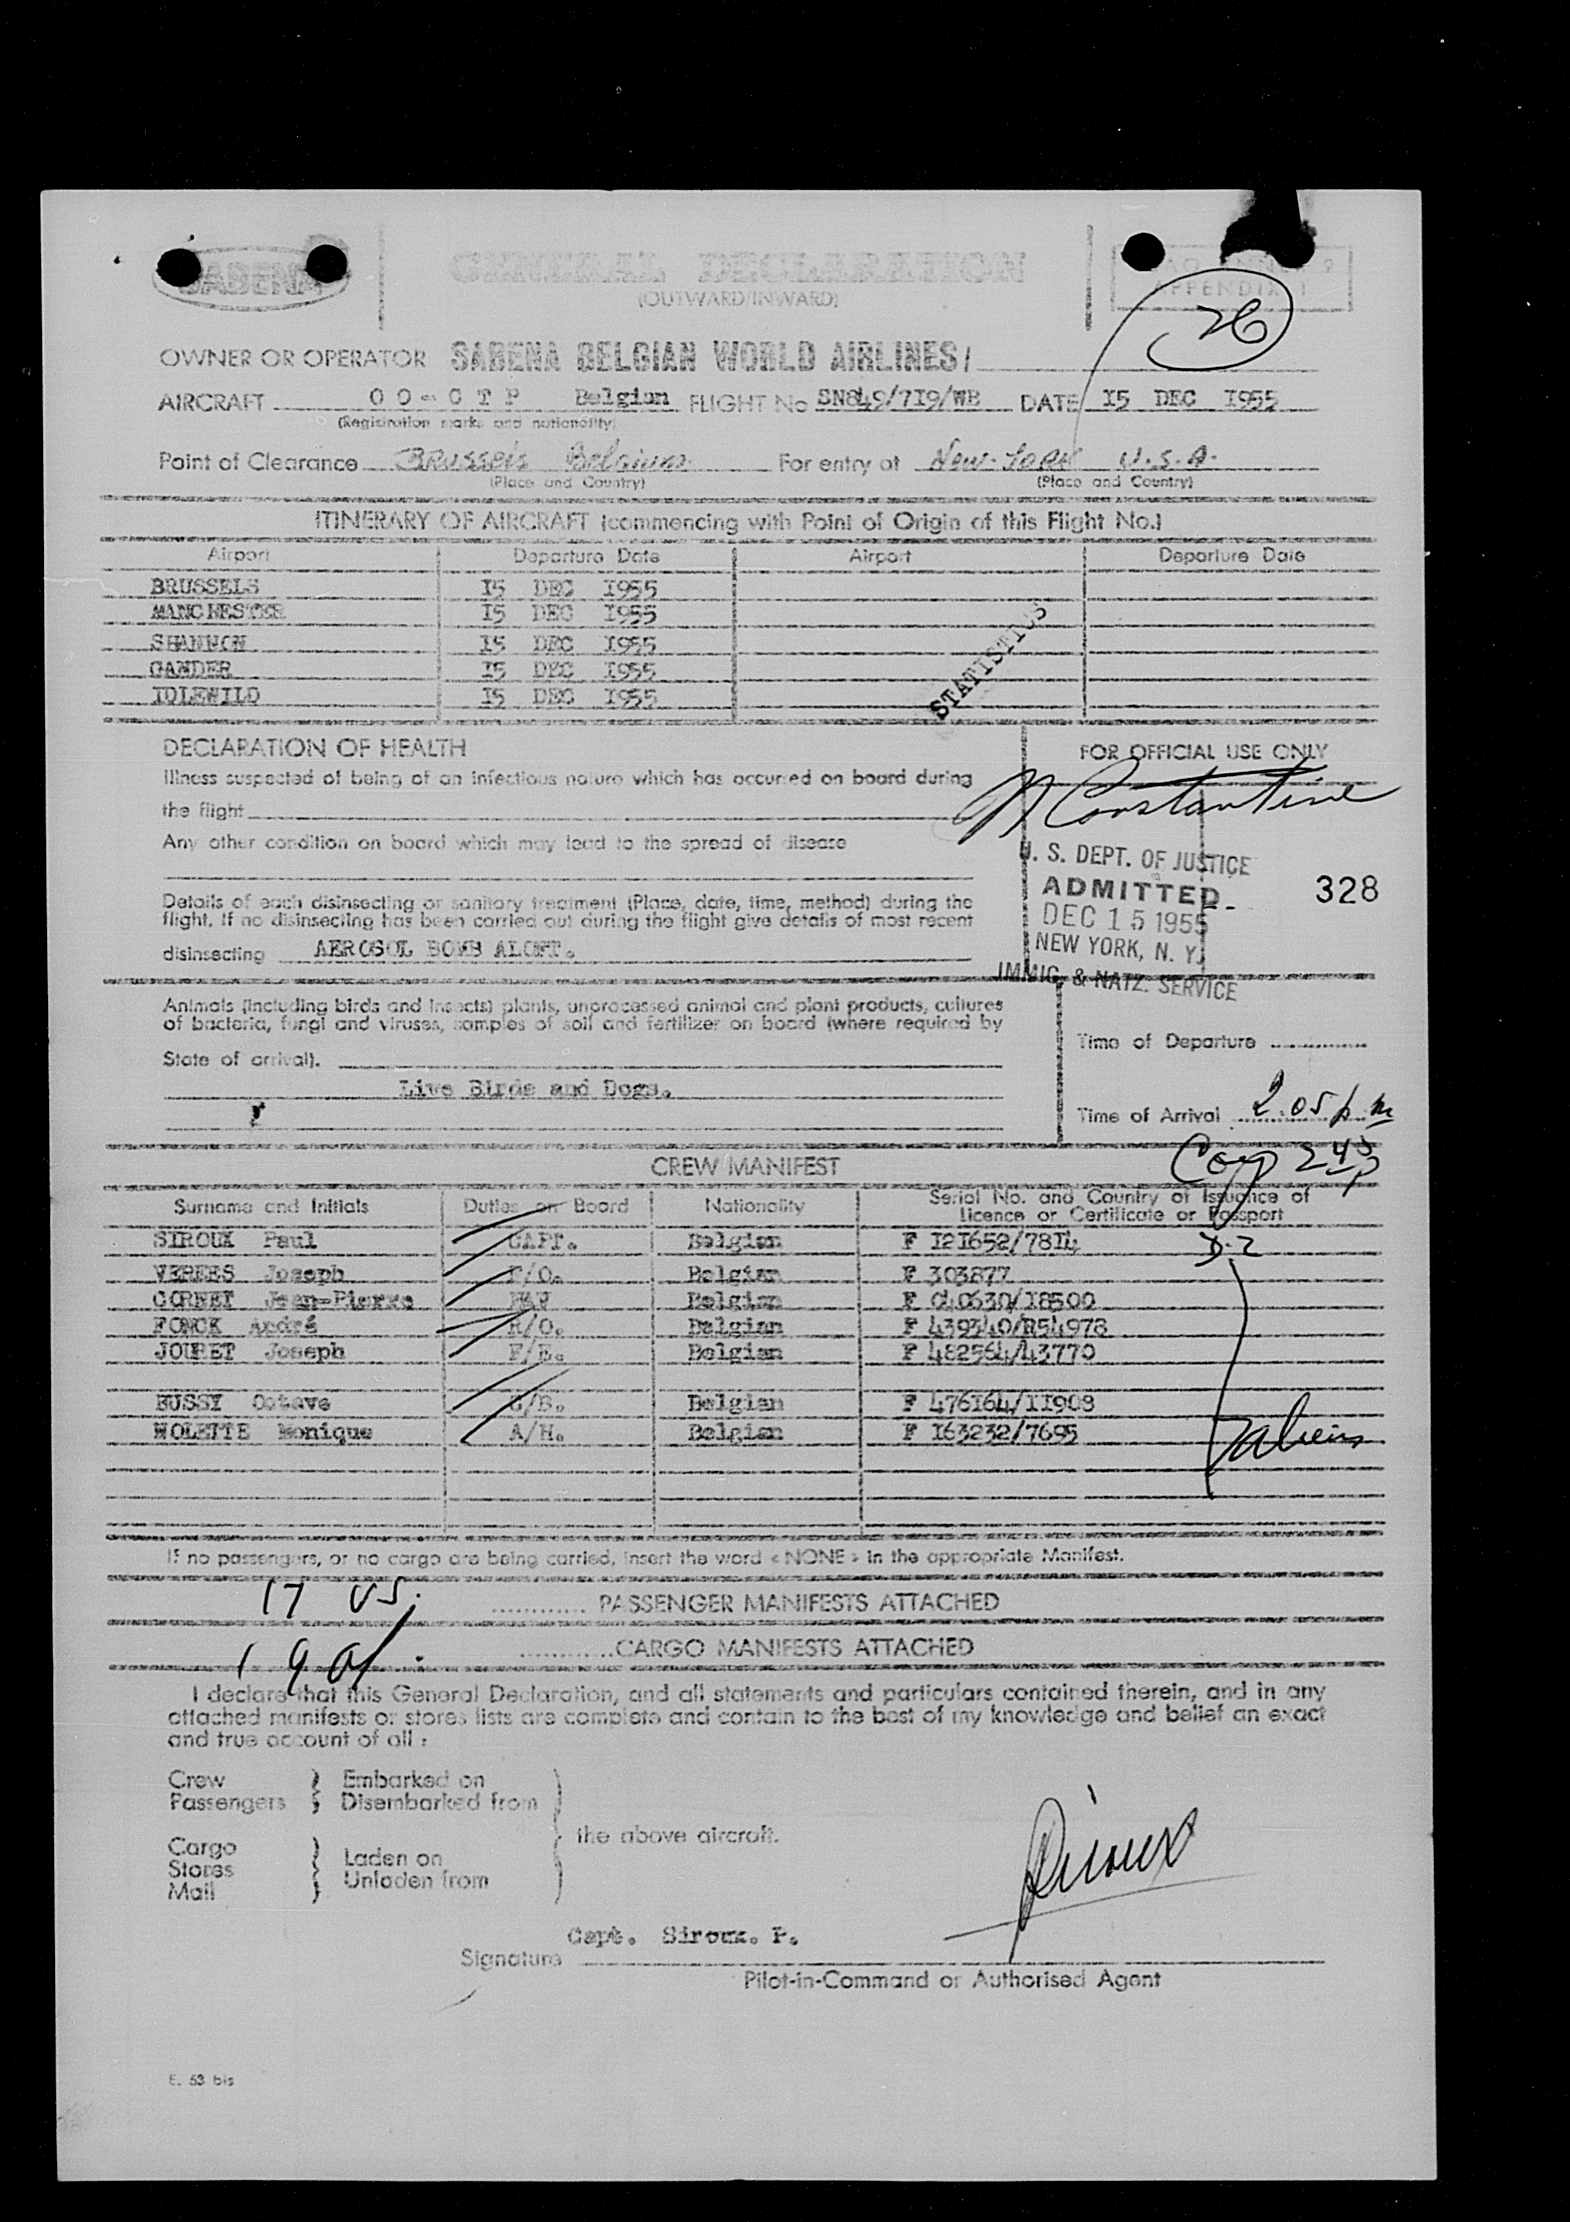 SABENA
GENERAL DECLARATION
(OUTWARD/INWARD)
APPENDIX 1
26
OWNER OR OPERATOR SABENA BELGIAN WORLD AIRLINES/
AIRCRAFT OO-CTP Belgian FLIGHT No SN849/7I9/WB DATE I5 DEC I955
(Registration marks and nationality)
Point of Clearance Brussels Belgium For entry at New-York U.S.A.
(Place and Country) (Place and Country)
ITINERARY OF AIRCRAFT (commencing with Point of Origin of this Flight No.)
Airport Departure Date Airport Departure Date
BRUSSELS I5 DEC I955
MANCHESTER I5 DEC I955
SHANNON I5 DEC I955
GANDER I5 DEC I955
IDLEWILD I5 DEC I955
STATISTICS
DECLARATION OF HEALTH
Illness suspected of being of an infectious nature which has occurred on board during
the flight
Any other condition on board which may lead to the spread of disease
Details of each disinsecting or sanitary treatment (Place, date, time, method) during the
flight. If no disinsecting has been carried out during the flight give details of most recent
disinsecting AEROSOL BOMB ALOFT.
FOR OFFICIAL USE ONLY
M Constantine
U. S. DEPT. OF JUSTICE
ADMITTED
328
DEC 15 1955
NEW YORK, N. Y.
IMMIG. & NATZ. SERVICE
Animals (including birds and insects) plants, unprocessed animal and plant products, cultures
of bacteria, fungi and viruses, samples of soil and fertilizer on board (where required by
State of arrival).
Live Birds and Dogs.
Time of Departure
Time of Arrival 2.05 p.m
CREW MANIFEST
Surname and Initials Duties on Board Nationality Serial No. and Country of Issuance of
Licence or Certificate or Passport
SIROUX Paul CAPT. Belgian F I2I652/78I4
D-2
VEREES Joseph F/O. Belgian F 303877
CORNET Jean-Pierre NAV Belgian F 040630/I8500
FONCK André R/O. Belgian F 439340/R54978
JOURET Joseph F/E. Belgian F 482564/43770
BUSSY Octave C/B. Belgian F 476I64/II908
WOLETTE Monique A/H. Belgian F I63232/7695
7 aliens
If no passengers, or no cargo are being carried, insert the word « NONE » in the appropriate Manifest.
17 US.
PASSENGER MANIFESTS ATTACHED
CARGO MANIFESTS ATTACHED
I declare that this General Declaration, and all statements and particulars contained therein, and in any
attached manifests or stores lists are complete and contain to the best of my knowledge and belief an exact
and true account of all :
Crew Embarked on
Passengers Disembarked from
the above aircraft.
Cargo
Stores Laden on
Mail Unladen from
Siroux
Capt. Siroux. P.
Signature
Pilot-in-Command or Authorised Agent
E. 53 bis